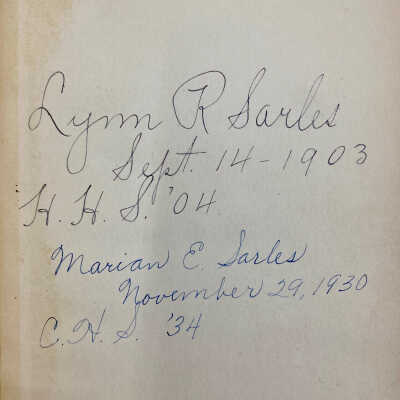 Lynn R Sarles
Sept. 14-1903
H. H. S. '04
Marian E. Sarles
November 29, 1930
C. H. S. '34